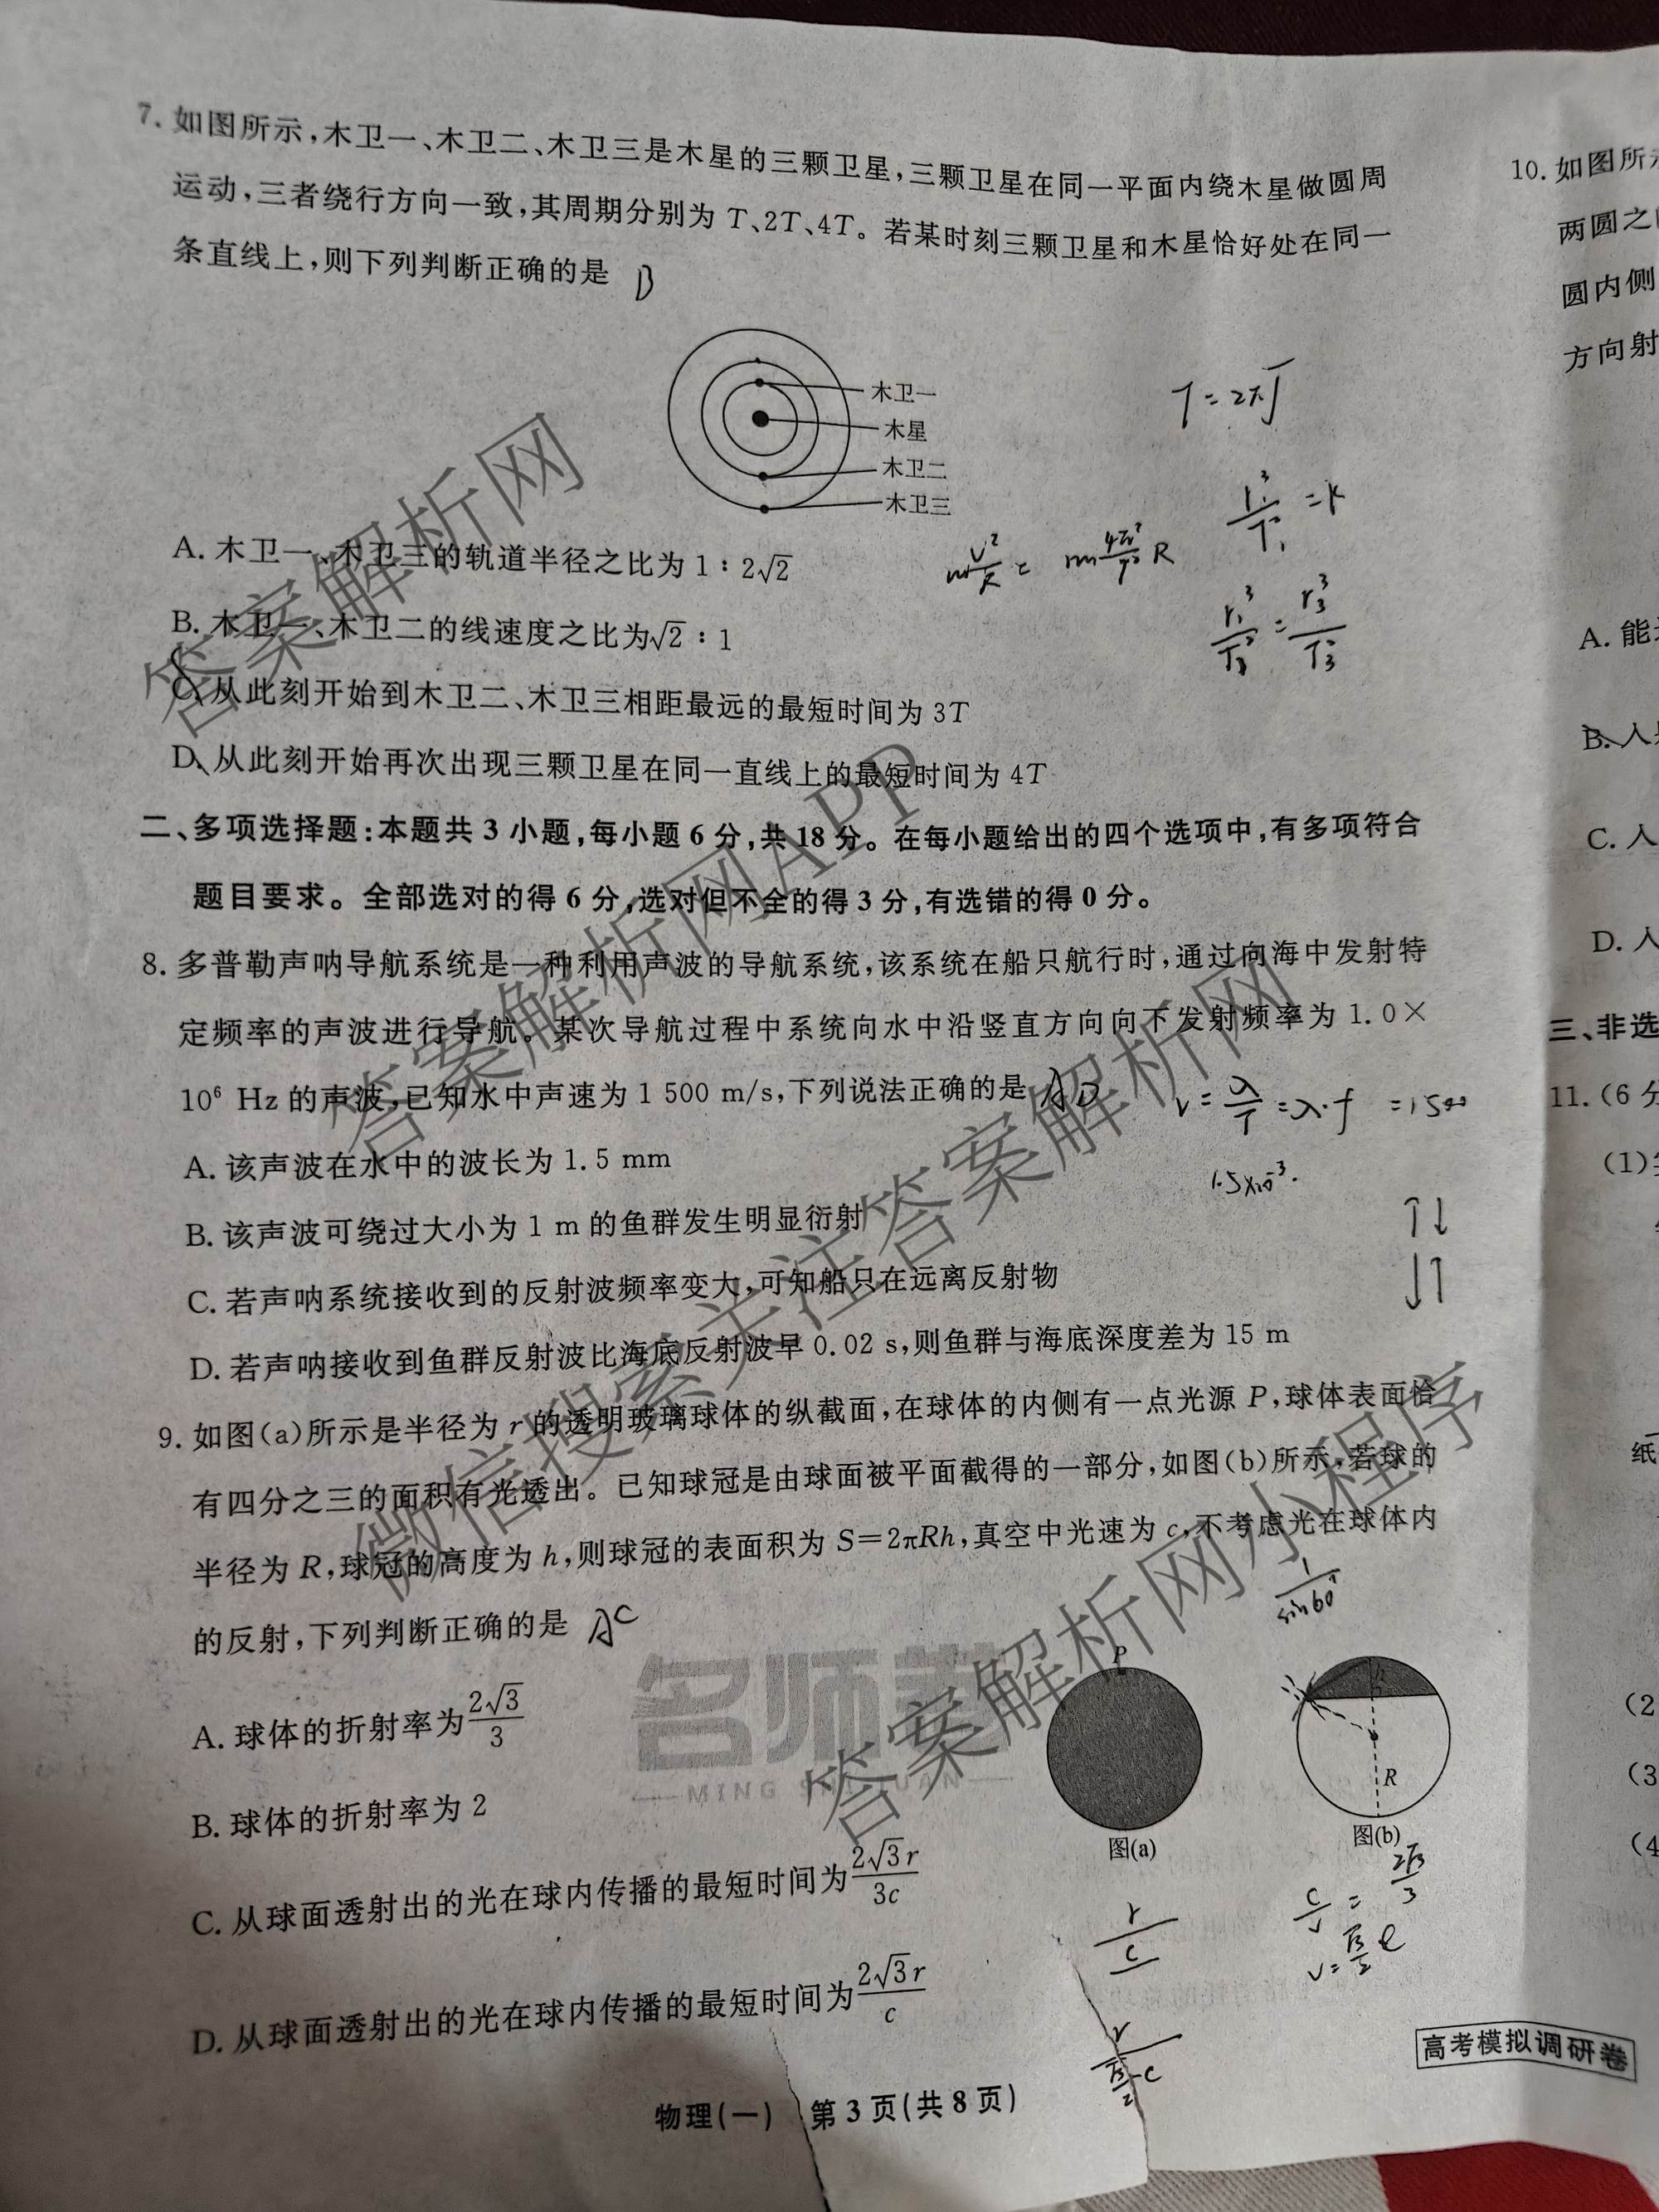 7. 如图所示,木卫一、木卫二、木卫三是木星的三颗卫星,三颗卫星在同一平面内绕木星做圆周
运动,三者绕行方向一致,其周期分别为 T、2T、4T。若某时刻三颗卫星和木星恰好处在同一
条直线上,则下列判断正确的是 D
木卫一
木星
木卫二
木卫三
T=2π√
r₁³/T₁²=k
mv²/R = m4π²/T²R
r₁³/T₁²=r₃³/T₃²
A. 木卫一、木卫三的轨道半径之比为 1∶2√2
B. 木卫一、木卫二的线速度之比为√2∶1
C. 从此刻开始到木卫二、木卫三相距最远的最短时间为 3T
D. 从此刻开始再次出现三颗卫星在同一直线上的最短时间为 4T
二、多项选择题:本题共 3 小题,每小题 6 分,共 18 分。在每小题给出的四个选项中,有多项符合
题目要求。全部选对的得 6 分,选对但不全的得 3 分,有选错的得 0 分。
8. 多普勒声呐导航系统是一种利用声波的导航系统,该系统在船只航行时,通过向海中发射特
定频率的声波进行导航。某次导航过程中系统向水中沿竖直方向向下发射频率为 1.0×
10⁶ Hz 的声波,已知水中声速为 1 500 m/s,下列说法正确的是 AD
v=λ/T=λ·f =1500
1.5×10⁻³.
A. 该声波在水中的波长为 1.5 mm
B. 该声波可绕过大小为 1 m 的鱼群发生明显衍射
C. 若声呐系统接收到的反射波频率变大,可知船只在远离反射物
D. 若声呐接收到鱼群反射波比海底反射波早 0.02 s,则鱼群与海底深度差为 15 m
9. 如图(a)所示是半径为 r 的透明玻璃球体的纵截面,在球体的内侧有一点光源 P,球体表面恰
有四分之三的面积有光透出。已知球冠是由球面被平面截得的一部分,如图(b)所示,若球的
半径为 R,球冠的高度为 h,则球冠的表面积为 S=2πRh,真空中光速为 c,不考虑光在球体内
的反射,下列判断正确的是 AC
1/sin60°
A. 球体的折射率为2√3/3
B. 球体的折射率为 2
C. 从球面透射出的光在球内传播的最短时间为2√3r/3c
D. 从球面透射出的光在球内传播的最短时间为2√3r/c
P
图(a)
h
R
图(b)
c/v=2√3/3
v=√3/2 c
r/c
r/(√3/2 c)
物理(一) 第 3 页(共 8 页)
高考模拟调研卷
10. 如图所
两圆之
圆内侧
方向射
A. 能
B. 人
C. 人
D. 人
三、非选
11. (6 分
(1)
纸
(2
(3
(4
MING SHI
答案解析网
答案解析网APP
微信搜索关注答案解析网
答案解析网小程序